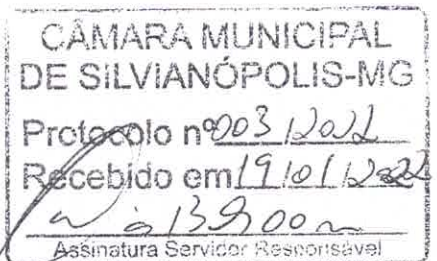 CÂMARA MUNICIPAL
DE SILVIANÓPOLIS-MG
Protocolo nº 003/2022
Recebido em 19/01/2022
Assinatura Servidor Responsável